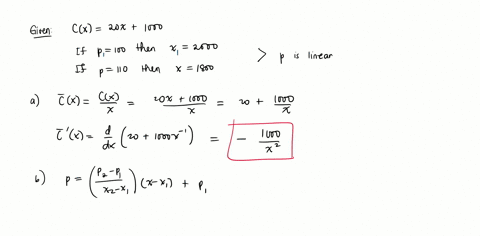 Given: C(x) = 20x + 1000
If p₁ = 100 then x₁ = 2000
If p = 110 then x = 1800 > p is linear
a) C̅(x) = C(x)/x = (20x + 1000)/x = 20 + 1000/x
C̅'(x) = d/dx (20 + 1000x⁻¹) = - 1000/x²
b) p = ((p₂ - p₁)/(x₂ - x₁)) (x - x₁) + p₁